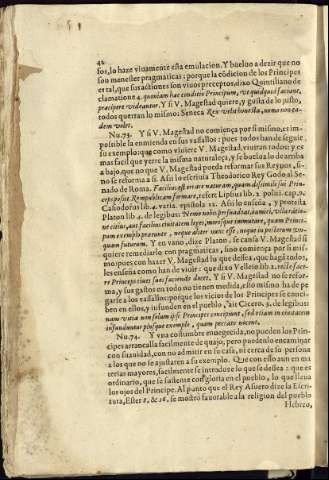 42
sos, lo haze viuamente esta emulacion. Y bueluo a dezir que no
son menester pragmaticas: porque la cõdicion de los Principes
es tal, que sus actiones son viuos preceptos, dixo Quintiliano de
clamatione 4. quoniam hæc conditio Principum, vt quidquid faciant,
præcipere videantur. Y si V. Magestad quiere, y gusta de lo justo,
todos querran lo mismo: Seneca Rex velit honesta, nemo non ea-
dem volet.
Nu. 73. Y si V. Magestad no comiença por si mismo, es im-
possible la emienda en sus vassallos: pues todos han de seguir
su exemplo: que como viuiere V. Magestad, viuiran todos: y es
mas facil que yerre la misma naturaleza, y se buelua lo de arriba
a bajo, que no que V. Magestad pueda reformar sus Reynos, si
no se reforma a si. Assi lo escriuia Theodorico Rey Godo al Se-
nado de Roma. Facilius est errare naturam, quam dissimilem sui Prin-
ceps possit Rempublicam formare, refert Lipsus lib. 2. polit. cap. 9.
Casiodorus lib. 4. epistola 12. Assi lo enseña, y protesta
Platon lib. 4. de legibus: Nemo nobis persuadeat, amici,
ne citius, aut facilius ciuitatem leges, moresque immutare, quam Princi-
pum exemplo præeunte, neque aliter nunc esse, neque in posterum vn-
quam futurum. Y en vano, dize Platon, se cansa V. Magestad si
quiere remediarlo con pragmaticas, sino comiença por si mis-
mo: pues con hazer V. Magestad lo que dessea, que hagã todos,
les enseña como han de viuir: que dixo Velleio lib. 2. recte face-
re Princeps ciues suos faciendo docet. Y si V. Magestad no se refor-
ma, y sus gastos en todo no tienen medida, esso mismo ha de pe
garse a los vassallos: porque los vicios de los Principes se conci-
ben en ellos, y infunden en el pueblo, ait Cicero, 3. de legibus:
nam vitia non solum ipsi Principes concipiunt, sed etiam in ciuitatem
infundunt: plusque exemplo, quam peccato nocent.
Nu. 74. Y vna costumbre enuegecida, no pueden los Prin-
cipes arrancalla facilmente de quajo, pero puedenlo encaminar
con suauidad, con no admitir en su casa, ni cerca de su persona
a los que no se ajustaren a su exemplo. Que con esto aun en ma
terias mayores, facilmente se introduce lo que se dessea: que es
ordinario, que se assiente con gloria en el pueblo, lo que lleua
los ojos del Principe. Al punto que el Rey Assuero dize la Escri-
tura, Ester 8. & 16. se mostró fauorable a la religion del pueblo
Hebreo,